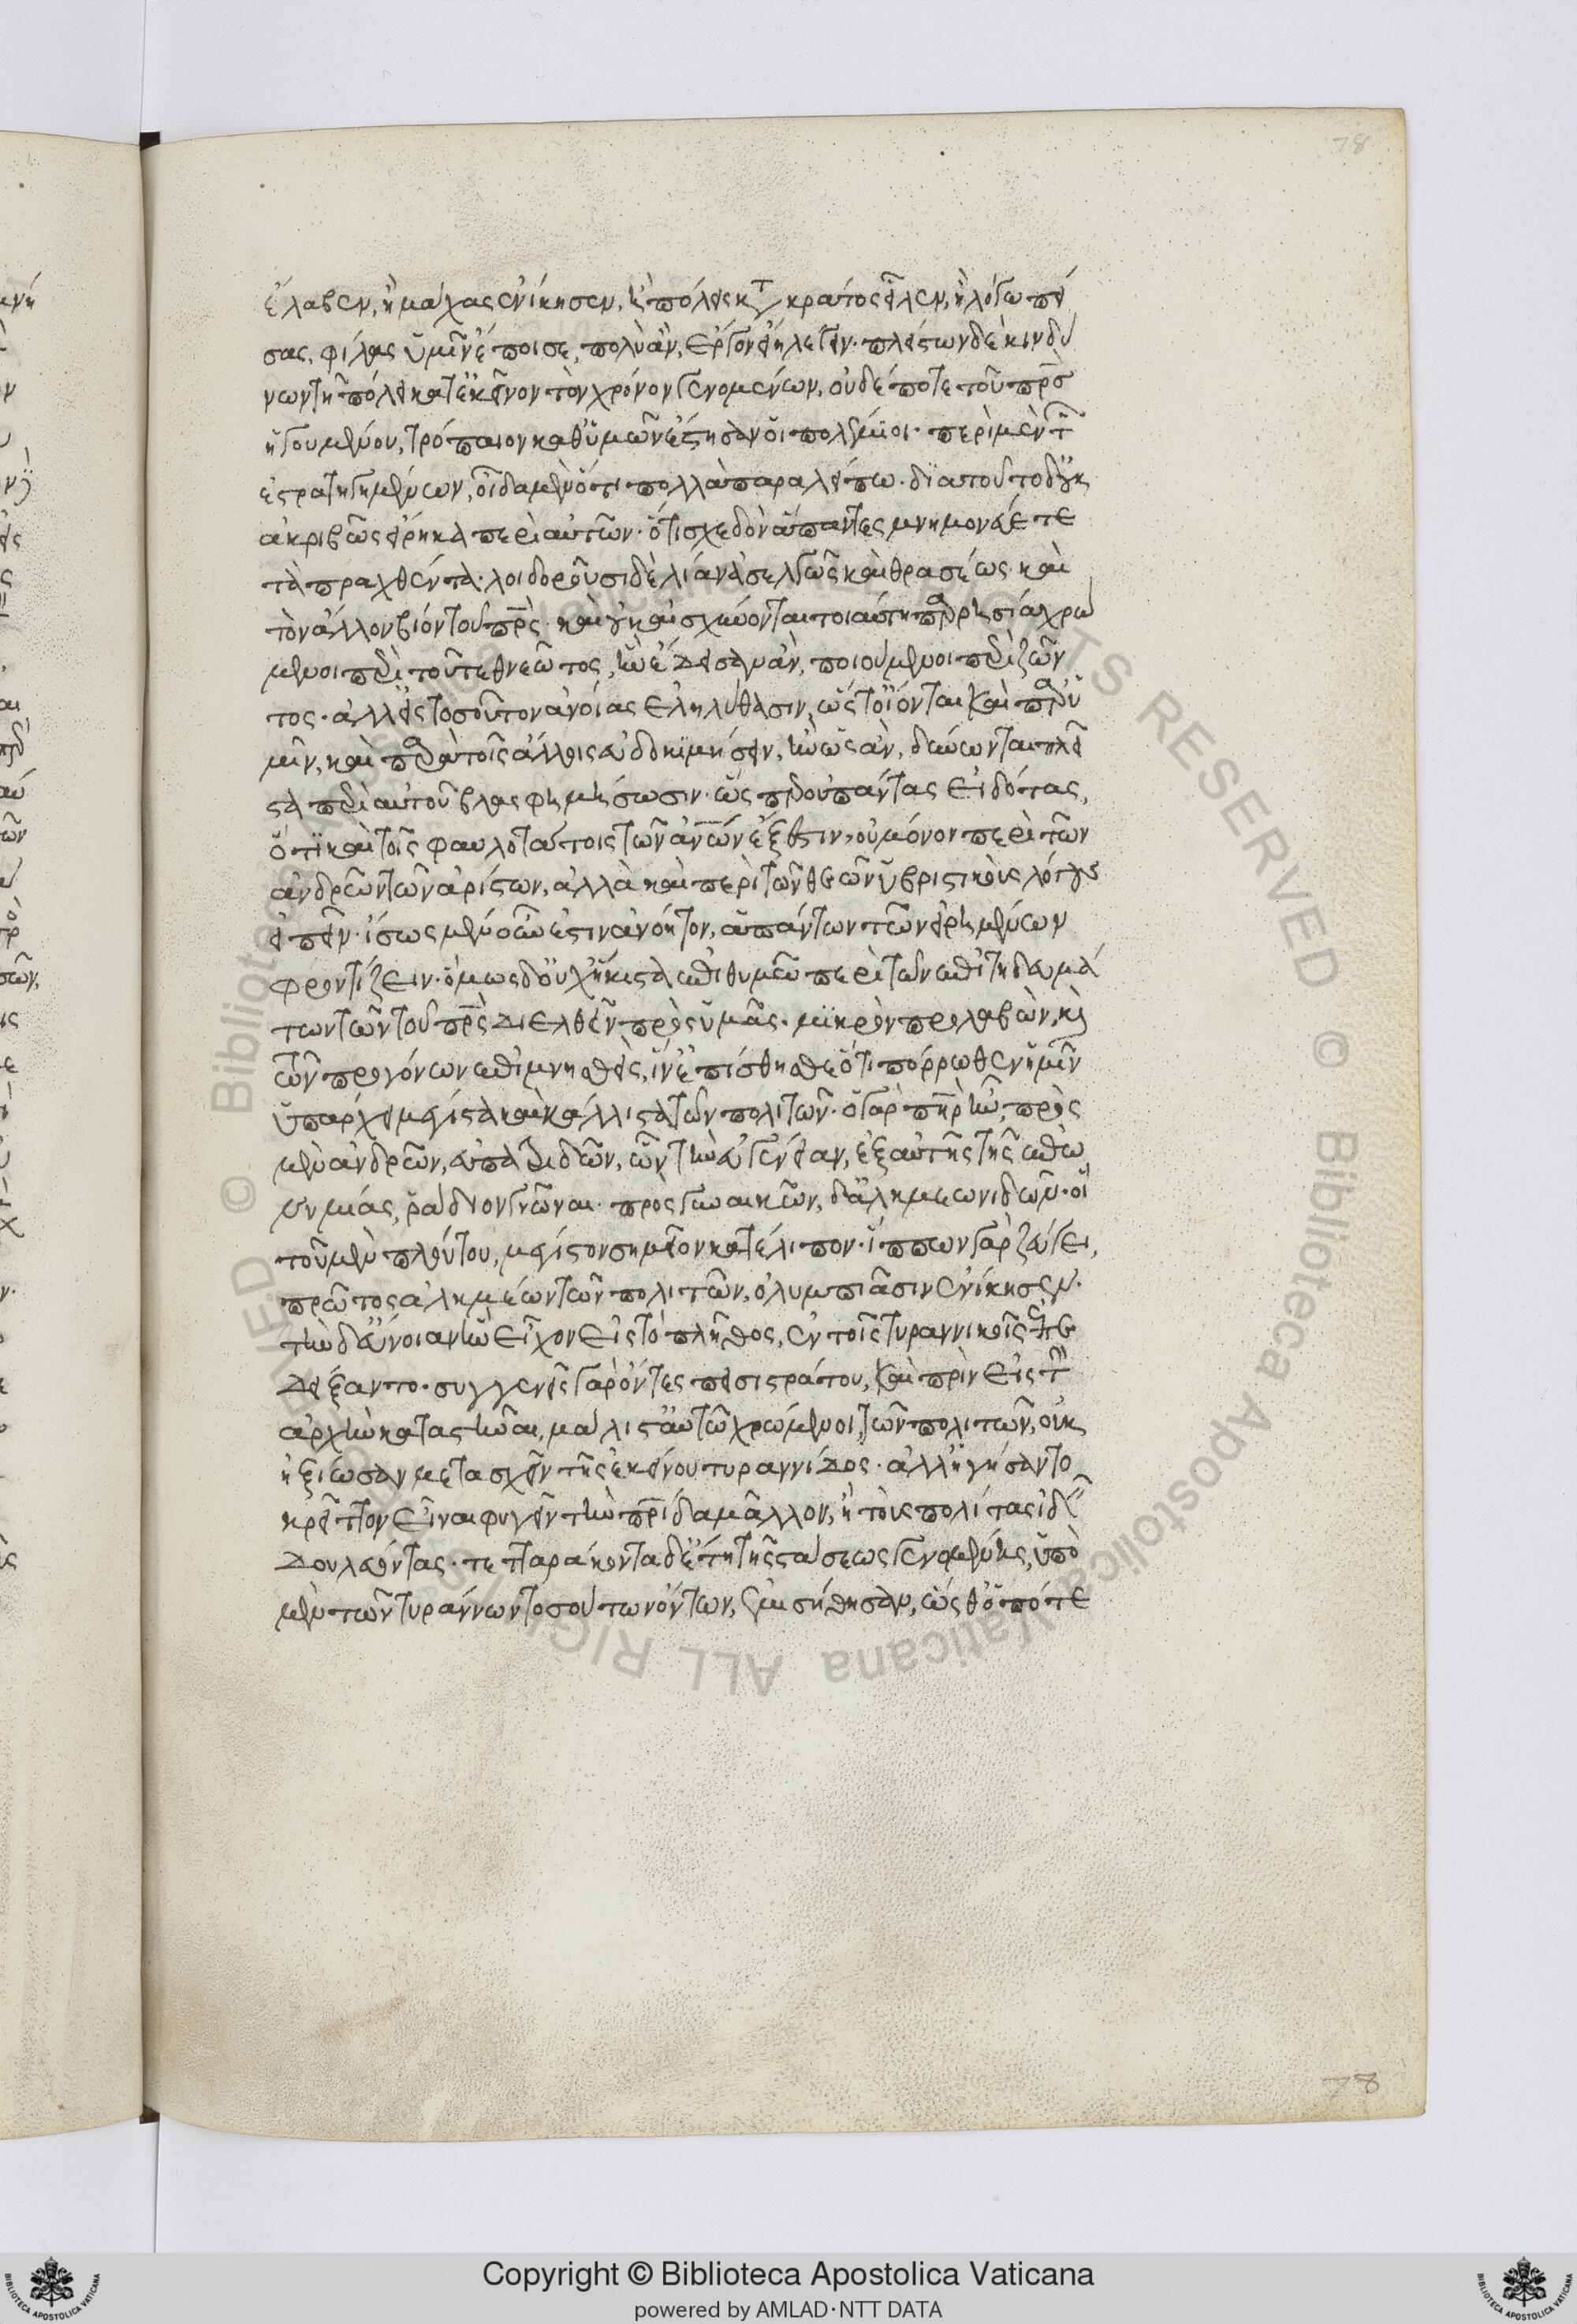 78
ἔλαβεν, ἢ μάχας ἐνίκησεν, ἢ πόλεις κατὰ κράτος εἷλεν, ἢ λόγω πεί
σας, φίλας ὑμῖν ἐποίησε, πολὺ ἂν, ἔργον εἴη λέγειν. πλείστων δὲ κινδύ
νων τῆ πόλει κατ' ἐκεῖνον τὸν χρόνον γενομένων, οὐδέποτε τοῦ πρσ
ἡγουμένου, τρόπαιον καθ' ὑμῶν ἔστησαν οἱ πολέμιοι. περὶ μὲν τῶν
ἐστρατηγημένων, οἶδα μὲν ὅτι πολλὰ παραλείπω. διὰ τοῦτο δ' οὐκ
ἀκριβῶς εἴρηκα περὶ αὐτῶν. ὅτι σχεδὸν ἅπαντες μνημονεύετε
τὰ πραχθέντα. λοιδοροῦσι δὲ λίαν ἀσελγῶς καὶ θρασέως καὶ
τὸν ἄλλον βίον τοῦ πρς. καὶ οὐκ αἰσχύνονται τοιαύτη παρρησία χρώ
μενοι περὶ τοῦ τεθνεῶτος, ἣν ἔδεισαν ἂν, ποιούμενοι περὶ ζῶν
τος. ἀλλ' εἰς τοσοῦτον ἀνοίας ἐληλύθασιν, ὥστ' οἴονται καὶ παρ' ὑ
μῖν, καὶ παρὰ τοῖς ἄλλοις εὐδοκιμήσειν, ἢν ὡς ἂν, δύνωνται πλεῖ
στα περὶ αὐτοῦ βλασφημήσωσιν. ὥσπερ οὐ πάντας εἰδότας,
ὅτι καὶ τοῖς φαυλοτάτοις τῶν ἀνων ἔξεστιν, οὐ μόνον περὶ τῶν
ἀνδρῶν τῶν ἀρίστων, ἀλλὰ καὶ περὶ τῶν θεῶν ὑβριστικοὺς λόγους
εἰπεῖν. ἴσως μὲν οὖν ἐστιν ἀνόητον, ἁπάντων τῶν εἰρημένων
φροντίζειν. ὅμως δ' οὐχ ἥκιστα ἐπιθυμῶ περὶ τῶν ἐπιτηδευμά
των τῶν τοῦ πρς διελθεῖν πρὸς ὑμᾶς. μικρὸν προλαβὼν, καὶ
τῶν προγόνων ἐπιμνησθεὶς, ἵν' ἐπίστησθε ὅτι πόρρωθεν ἡμῖν
ὑπάρχει μέγιστα καὶ κάλλιστα τῶν πολιτῶν. ὁ γὰρ πηρ ἦν, πρὸς
μὲν ἀνδρῶν, εὐπατριδῶν, ὧν τὴν εὐγένειαν, ἐξ αὐτῆς τῆς ἐπω
νυμίας, ῥάδιον γνῶναι. πρὸς γυναικῶν, δ' ἀλκμεωνιδῶν. οἳ
τοῦ μὲν πλούτου, μέγιστον σημεῖον κατέλιπον. ἵππων γὰρ ζεύγει,
πρῶτος ἀλκμέων τῶν πολιτῶν, ὀλυμπίασιν ἐνίκησεν.
τὴν δ' εὔνοιαν ἣν εἶχον εἰς τὸ πλῆθος, ἐν τοῖς τυραννικοῖς ἐπε
δείξαντο. συγγενεῖς γὰρ ὄντες πεισιστράτου, καὶ πρὶν εἰς τὴν
ἀρχὴν καταστῆναι, μάλιστ' αὐτῶ χρώμενοι τῶν πολιτῶν, οὐκ
ἠξίωσαν μετασχεῖν τῆς ἐκείνου τυραννίδος. ἀλλ' ἡγήσαντο
κρεῖττον εἶναι φυγεῖν τὴν πρίδα μᾶλλον, ἢ τοὺς πολίτας ἰδεῖν
δουλεύοντας. τετταράκοντα δ' ἔτη τῆς στάσεως γενομένης, ὑπὸ
μὲν τῶν τυράννων τοσούτων ὄντων, ἐμισήθησαν, ὥσθ' ὁπότε
78
© Biblioteca Apostolica Vaticana ALL RIGHTS RESERVED
Copyright © Biblioteca Apostolica Vaticana
powered by AMLAD·NTT DATA